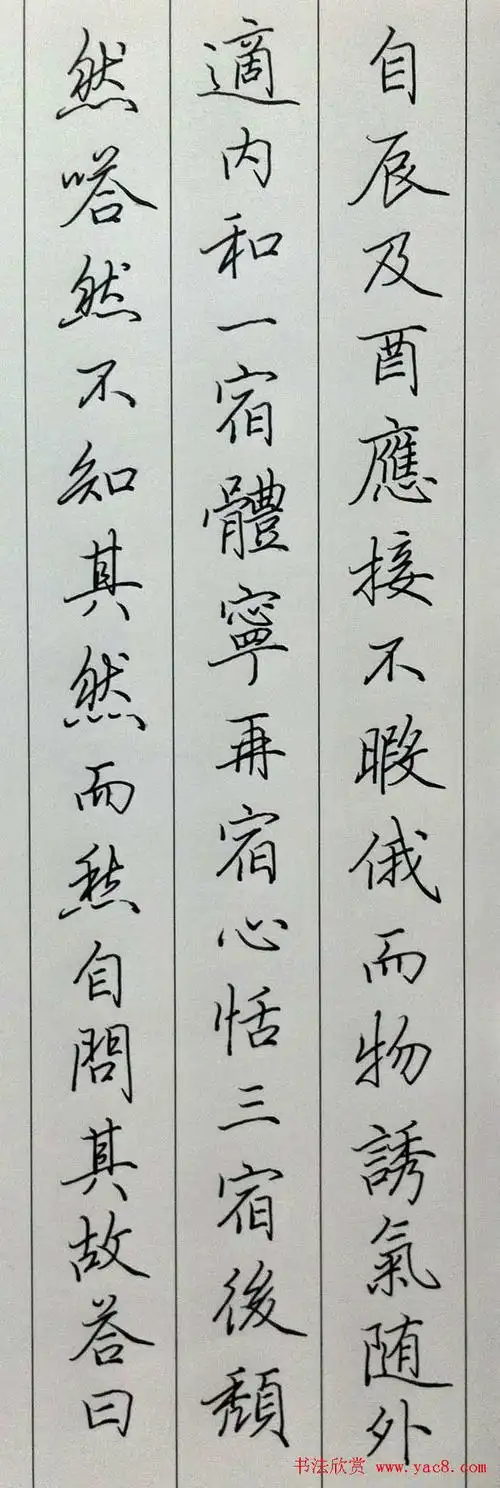 自辰及酉應接不暇俄而物誘氣随外
適內和一宿體寧再宿心恬三宿後頹
然嗒然不知其然而然自問其故荅曰
书法欣赏 www.yac8.com